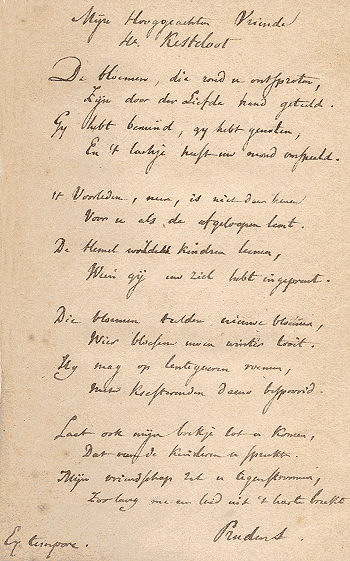 Mijn Hooggeachten Vriende
Hr. Kesteloot
De bloemen, die rond u ontsproten,
Zijn door der Liefde hand geteeld.
Gy hebt bemind, gy hebt genoten,
En 't lachje heeft uw mond omspeeld.
't Voorleden, neen, is niet daer henen
Voor u als de afgeloopen
De Hemel kindren leenen,
Wien gij uw ziel hebt ingeprent.
Die bloemen telden nieuwe bloemen,
Wier bloesem nooit
Hy mag op lentegeuren roemen,
Laet ook mijn boekje tot u komen,
Dat van de kinderen u spreekt.
Mijn vriendschap zal u tegenstroomen,
Zoo lang me een lied uit 't hart breekt
Ex tempore.
Prudens.